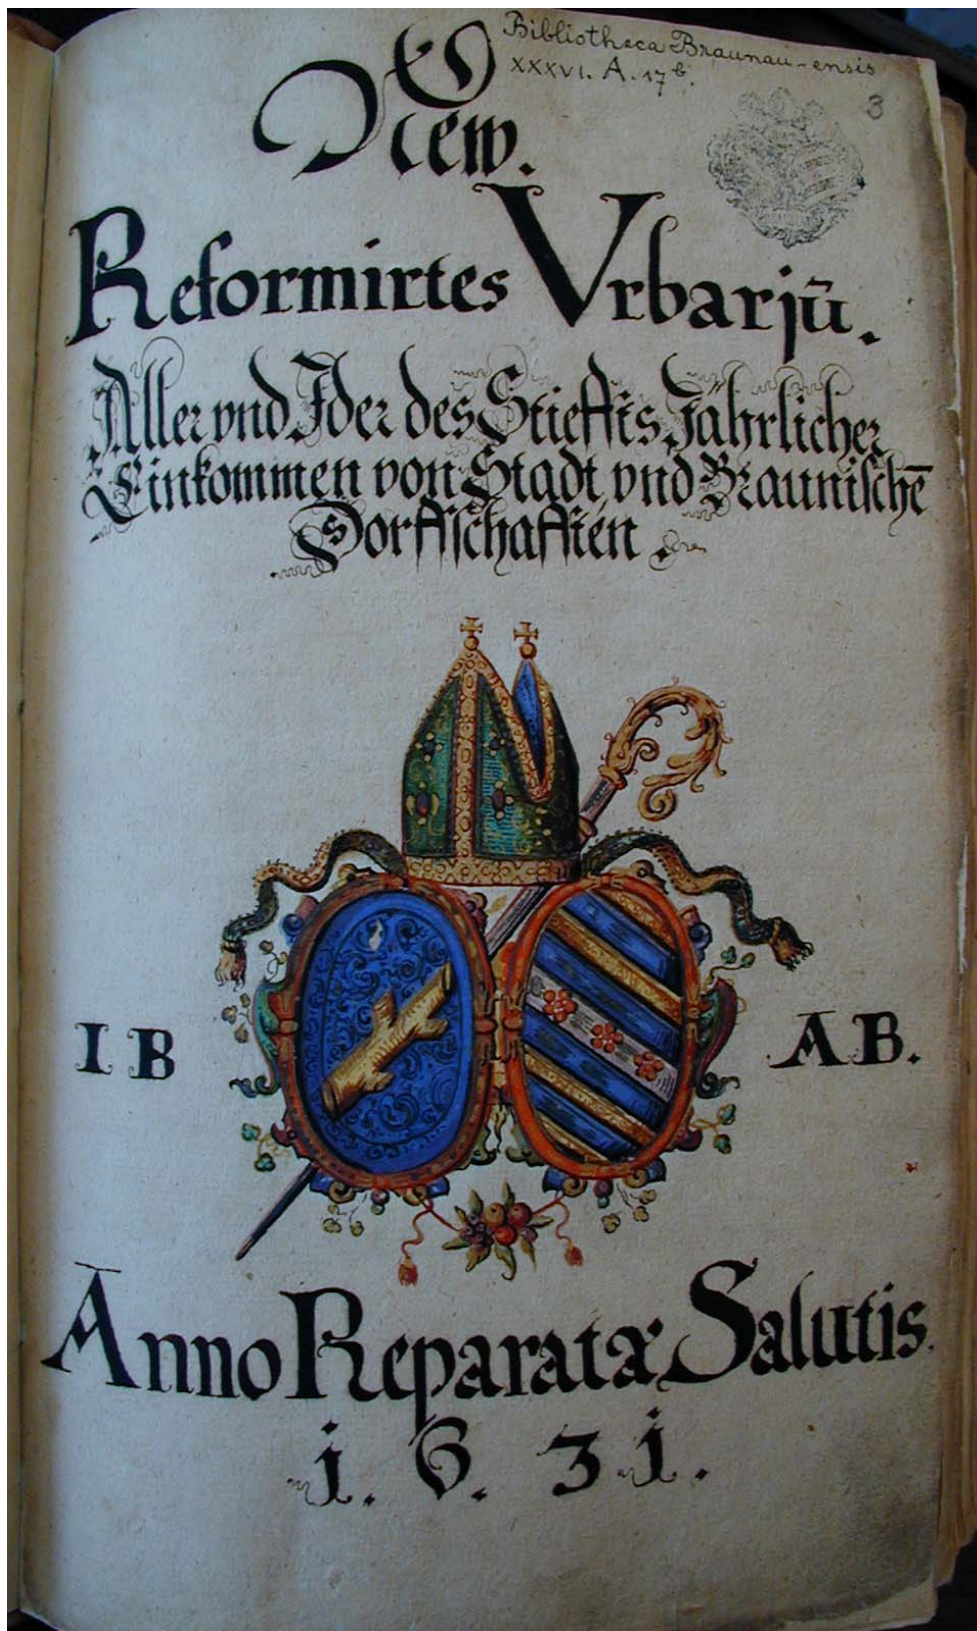 Bibliotheca Braunau-ensis
XXXVI. A. 17 b.
3
New.
Reformirtes Vrbarjū.
Aller vnd Ider des Stieffts Jährlicher
Einkommen von Stadt vnd Braunischē
Dorffschafften.
I B
A B.
Anno Reparatæ Salutis.
1. 6. 31.